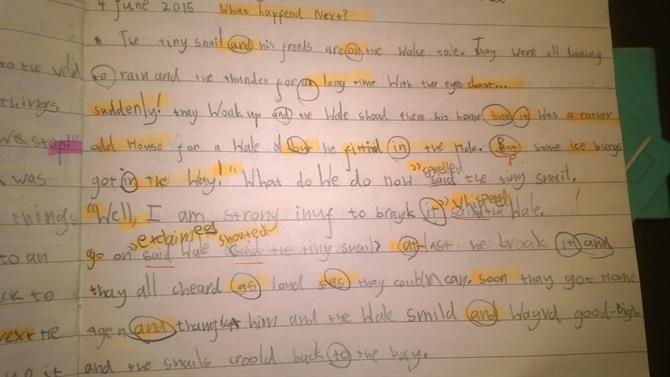 4 june 2015 What happend Next?
The tiny snail and his frends are on the Wale tale. They were all lisning
to the vild to rain and the thunder for an long time With ther eyes
things suddenly! thay Woak up and the Wale shoud them his home but it was a rather
we stop!!! odd House for a Wale but he fitid in the Hole. But some ice burgs
was got in the Way!" What do We do now said the tiny snail.
things "Well, I am strong inuf to brayk it said the Wale.
exclaimed shouted
to an go on said Wale said the tiny snail? at last he broak it and
ck to thay all cheard as loud as thay could soon thay got Home
next the agen and him and the Wale smild and Wayvd good-
it and the snails croold back to the bay.